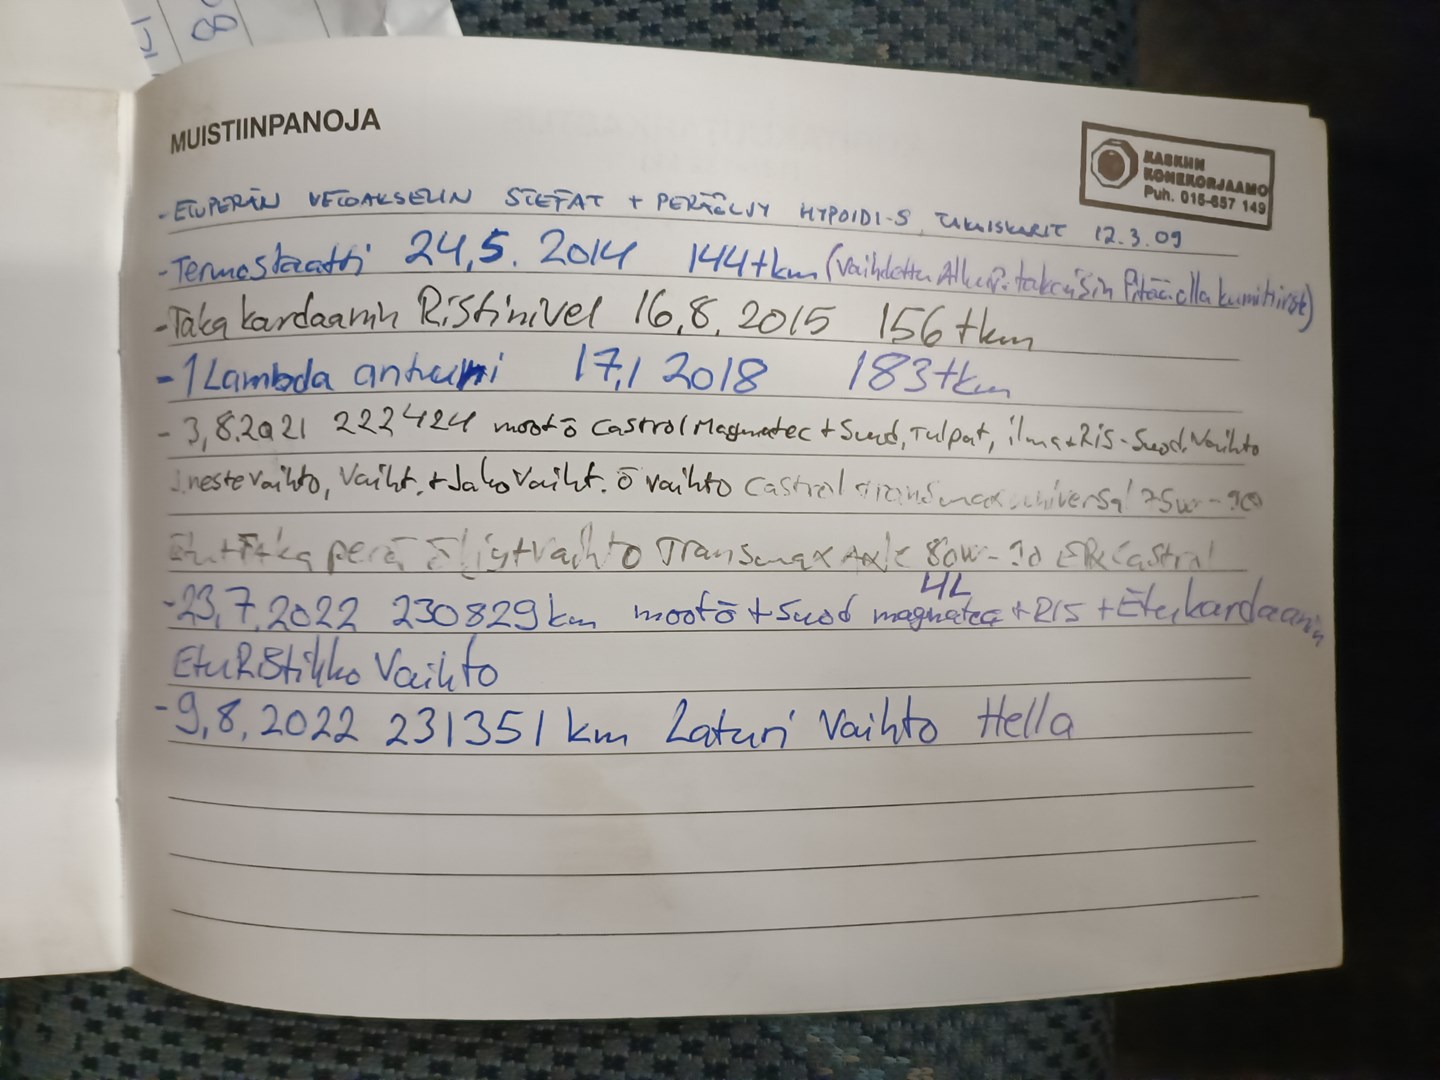 MUISTIINPANOJA
KASKIIN
KONEKORJAAMO
Puh. 015-657 149
- ETUPERÄN VETOAKSELIN STEFAT + PERÄÖLJY HYPOIDI-S, TAKAISKARIT 12.3.09
- Termostaatti 24,5. 2014 144tkm (Vaihdettu takaisin Pitää olla kumitiiviste)
- Taka kardaanin Ristinivel 16,8, 2015 156tkm
- 1 Lambda anturi 17,1 2018 183tkm
- 3,8.2021 222424 mootö Castrol Magnatec + Suod, Tulpat, ilma+RIS-Suod. Vaihto
J.neste vaihto, Vaiht. + Jako Vaiht. ö vaihto Castrol Transmax universal 75w-90
Etu + Taka perä Öljyt vaihto Transmax Axle 80w-90 Castrol
4L
- 23,7,2022 230829km mootö + Suod magnatec + RIS + Etu kardaanin
Etu Ristikko Vaihto
- 9,8,2022 231351 km Laturi Vaihto Hella